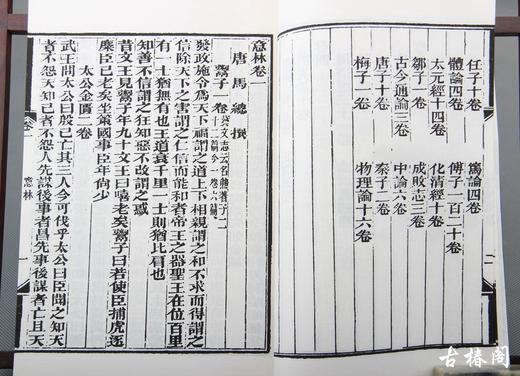 任子十卷 篤論四卷
體論四卷 傅子一百二十卷
太元經十四卷 化清經十卷
鄒子一卷 成敗志三卷
古今通論三卷 中論六卷
唐子十卷 秦子二卷
梅子一卷 物理論十六卷
意林卷一
唐馬總撰
鬻子一卷 藝文志云名熊著子二十二篇今一卷六篇
發政施令爲天下福謂之道上下相親謂之和不求而得謂之
信除天下之害謂之仁信而能和者帝王之器聖王在位百里
有一士猶無有也王道衰千里一士則猶比肩也
知善不行謂之狂知惡不改謂之惑
昔文王見鬻子年九十文王曰嘻老矣鬻子曰若使臣捕虎逐
麋臣已老矣坐策國事臣年尚少
太公金匱二卷
武王問太公曰殷已亡其三人今可伐乎太公曰臣聞之知天
者不怨天知己者不怨人先謀後事者昌先事後謀者亡且天
意林
一
古椿阁